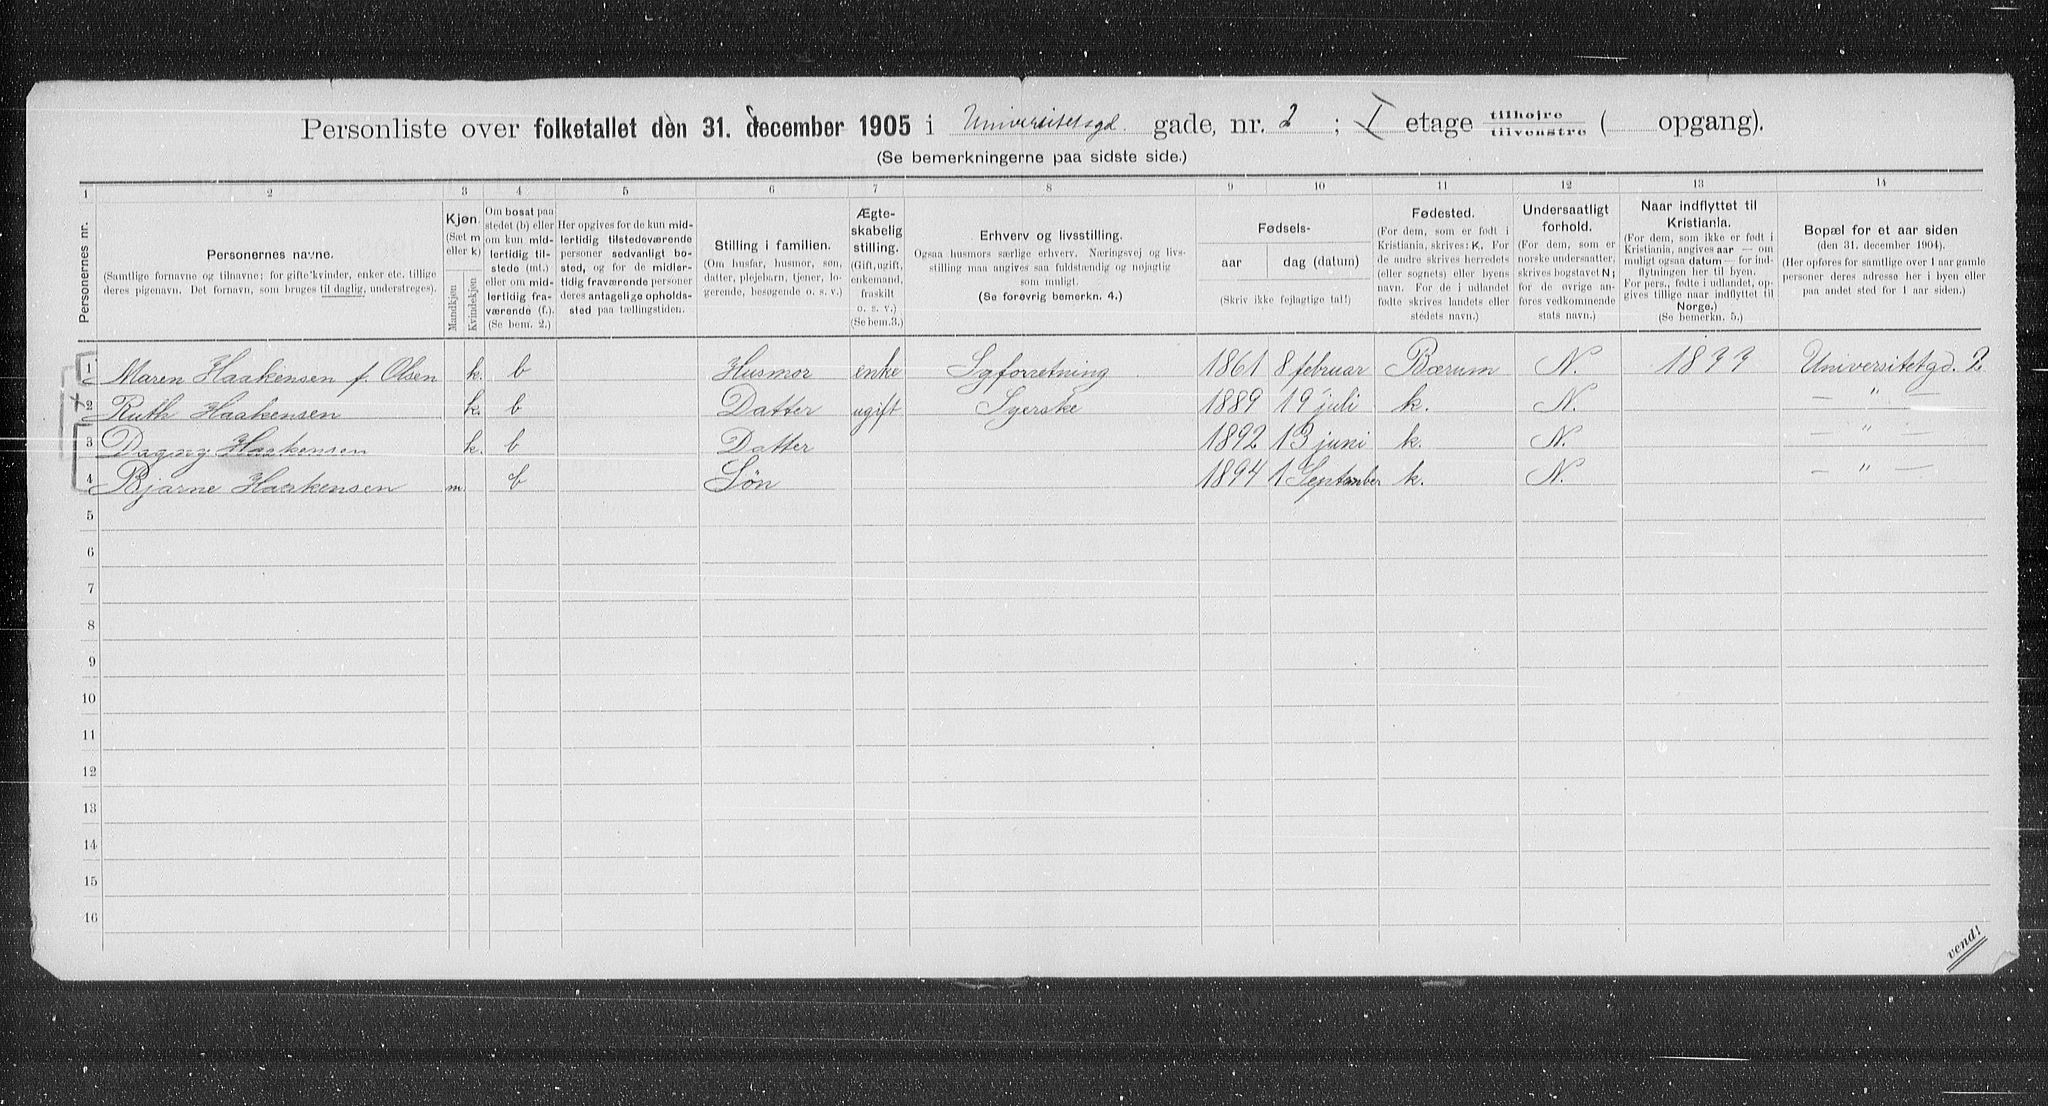 Personliste over folketallet den 31. december 1905 i Universitetsgd. gade, nr. 2 ; I etage tilhøjre tilvenstre ( opgang).
(Se bemerkningerne paa sidste side.)
1 2 3 4 5 6 7 8 9 10 11 12 13 14
Personernes nr.
Personernes navne.
(Samtlige fornavne og tilnavne; for gifte kvinder, enker etc. tillige
deres pigenavn. Det fornavn, som bruges til daglig, understreges).
Kjøn.
(Sæt m
eller k)
Mandkjøn
Kvindekjøn
Om bosat paa
stedet (b) eller
om kun mid-
lertidig til-
stede (mt.)
eller om mid-
lertidig fra-
værende (f.).
(Se bem. 2.)
Her opgives for de kun mid-
lertidig tilstedeværende
personer sedvanligt bo-
sted, og for de midler-
tidig fraværende personer
deres antagelige opholds-
sted paa tællingstiden.
Stilling i familien.
(Om husfar, husmor, søn,
datter, plejebarn, tjener, lo-
gerende, besøgende o. s. v.)
Ægte-
skabelig
stilling.
(Gift, ugift,
enkemand,
fraskilt
o. s. v.)
(Se bem.3.)
Erhverv og livsstilling.
Ogsaa husmors særlige erhverv. Næringsvej og livs-
stilling maa angives saa fuldstændig og nøjagtig
som muligt.
(Se forøvrig bemerkn. 4.)
Fødsels-
aar dag (datum)
(Skriv ikke fejlagtige tal!)
Fødested.
(For dem, som er født i
Kristiania, skrives: K. For
de andre skrives herredets
(eller sognets) eller byens
navn. For de i udlandet
fødte skrives landets eller
stedets navn.)
Undersaatligt
forhold.
(For dem, som er
norske undersaatter,
skrives bogstavet N;
for de øvrige an-
føres vedkommende
stats navn.)
Naar indflyttet til
Kristiania.
(For dem, som ikke er født i
Kristiania, angives aar — om
muligt ogsaa datum — for ind-
flytningen her til byen.
For pers., fødte i udlandet, op-
gives tillige naar indflyttet til
Norge.)
(Se bemerkn. 5.)
Bopæl for et aar siden
(den 31. december 1904).
(Her opføres for samtlige over 1 aar gamle
personer deres adresse her i byen eller
paa andet sted for 1 aar siden.)
1 Maren Haakensen f. Olsen k. b Husmor enke Syforretning 1861 8 februar Bærum N. 1877 Universitetgd. 2
2 Ruth Haakensen k. b Datter ugift Syerske 1889 19 juli k. N. — " —
3 Dagny Haakensen k. b Datter 1892 13 juni k. N. — " —
4 Bjarne Haakensen m. b Søn 1894 1 September k. N. — " —
5
6
7
8
9
10
11
12
13
14
15
16
vend!